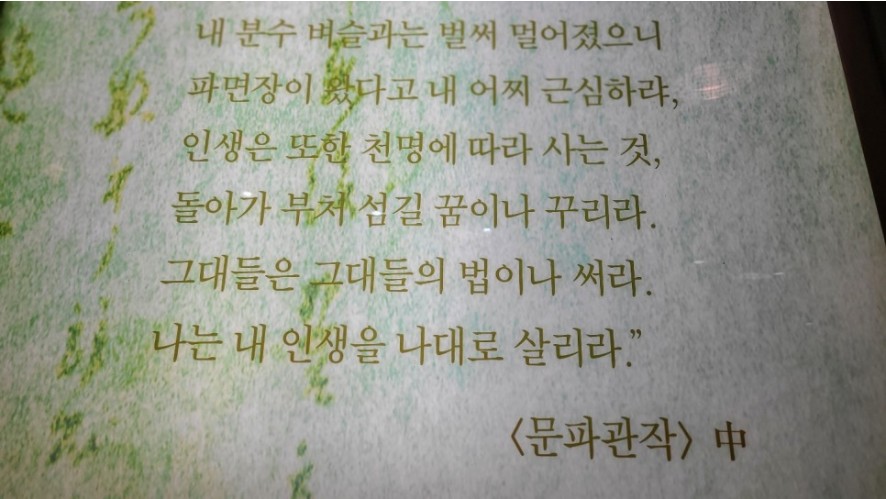 내 분수 벼슬과는 벌써 멀어졌으니
파면장이 왔다고 내 어찌 근심하랴,
인생은 또한 천명에 따라 사는 것,
돌아가 부처 섬길 꿈이나 꾸리라.
그대들은 그대들의 법이나 써라.
나는 내 인생을 나대로 살리라.”
〈문파관작〉 中